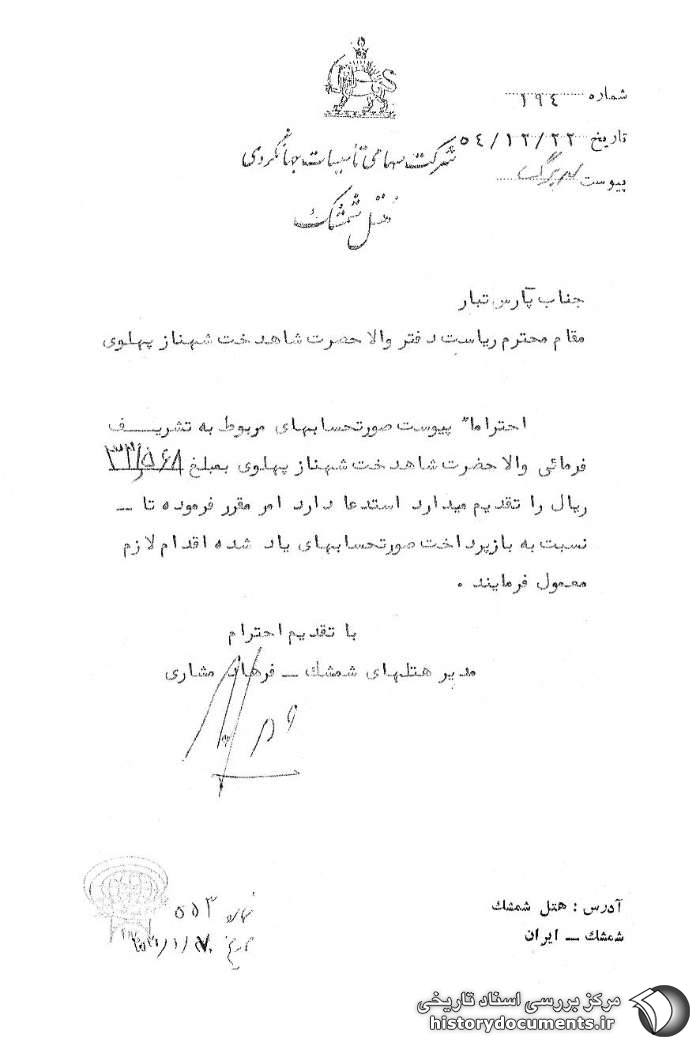 شماره ۱۹٤
تاریخ ٥٤/۱۲/۲۲
پیوست برگ
شرکت سهامی تأسیسات جهانگردی
هتل شمشک
جناب پارس تبار
مقام محترم ریاست دفتر والا حضرت شاهدخت شهناز پهلوی
احتراما" پیوست صورتحسابهای مربوط به تشریف
فرمائی والا حضرت شاهدخت شهناز پهلوی بمبلغ
ریال را تقدیم میدارد استدعا دارد امر مقرر فرموده تا ــ
نسبت به بازپرداخت صورتحسابهای یاد شده اقدام لازم
معمول فرمایند .
با تقدیم احترام
مدیر هتلهای شمشک ــ فرهاد مشاری
شماره ۵۵۳
تاریخ
آدرس : هتل شمشک
شمشک ــ ایران
مرکز بررسی اسناد تاریخی
historydocuments.ir